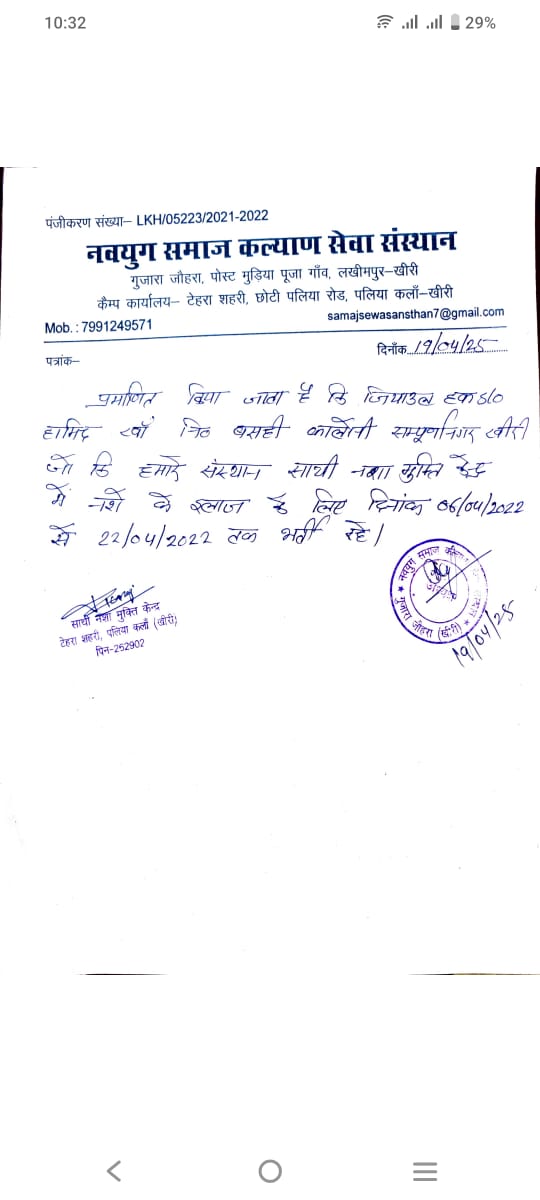 10:32
29%
पंजीकरण संख्या– LKH/05223/2021-2022
नवयुग समाज कल्याण सेवा संस्थान
गुजारा जौहरा, पोस्ट मुड़िया पूजा गाँव, लखीमपुर–खीरी
कैम्प कार्यालय– टेहरा शहरी, छोटी पलिया रोड, पलिया कलाँ–खीरी
samajsewasansthan7@gmail.com
Mob. : 7991249571
दिनाँक 19/04/25
पत्रांक–
प्रमाणित किया जाता है कि जियाउल हक S/o
हामिद खाँ नि० बसही कालोनी सम्पूर्णानगर खीरी
जो कि हमारे संस्थान साथी नशा मुक्ति केंद्र
में नशे के इलाज के लिए दिनांक 06/04/2022
से 22/04/2022 तक भर्ती रहे।
साथी नशा मुक्ति केन्द्र
टेहरा शहरी, पलिया कलाँ (खीरी)
पिन-252902
नवयुग समाज
गुजारा जौहरा (खीरी)
19/04/25